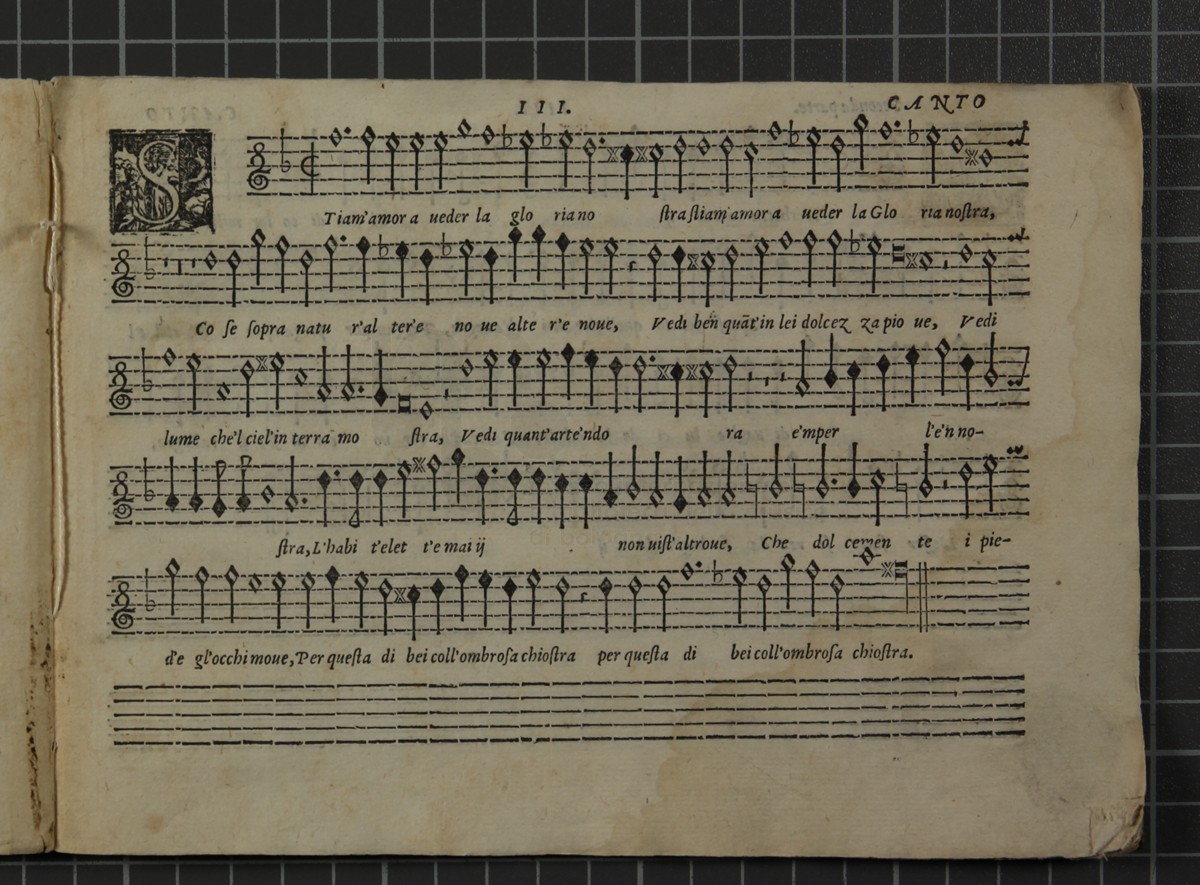 III. CANTO
S
Tiam'amor a ueder la glo ria no ſtra ſtiam'amor a ueder la Glo ria noſtra,
Co ſe ſopra natu r'al ter'e no ue alte r'e noue, Vedi ben quāt'in lei dolcez za pio ue, Vedi
lume che'l ciel'in terra mo ſtra, Vedi quant'arte'ndo ra e'mper l'e'n no-
ſtra, L'habi t'elet t'e mai ij non uiſt'altroue, Che dol cemen te i pie-
d'e gl'occhi moue, Per queſta di bei coll'ombroſa chioſtra per queſta di bei coll'ombroſa chioſtra.